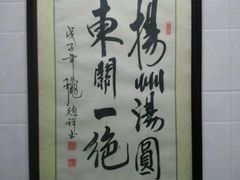 揚州湯圓
東關一絕
戊子年 德祥书